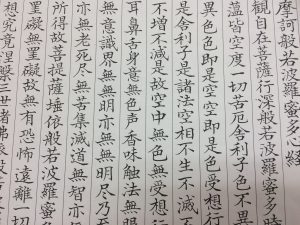 摩訶般若波羅蜜多心経
観自在菩薩行深般若波羅蜜多時
蘊皆空度一切苦厄舎利子色不異
異色色即是空空即是色受想行
是舎利子是諸法空相不生不滅
不増不減是故空中無色無受想行
耳鼻舌身意無色声香味触法無
無意識界無無明亦無無明尽乃至
亦無老死尽無苦集滅道無智亦
所得故菩提薩埵依般若波羅蜜多
罣礙無罣礙故無有恐怖遠離一切
想究竟涅槃三世諸佛依般若